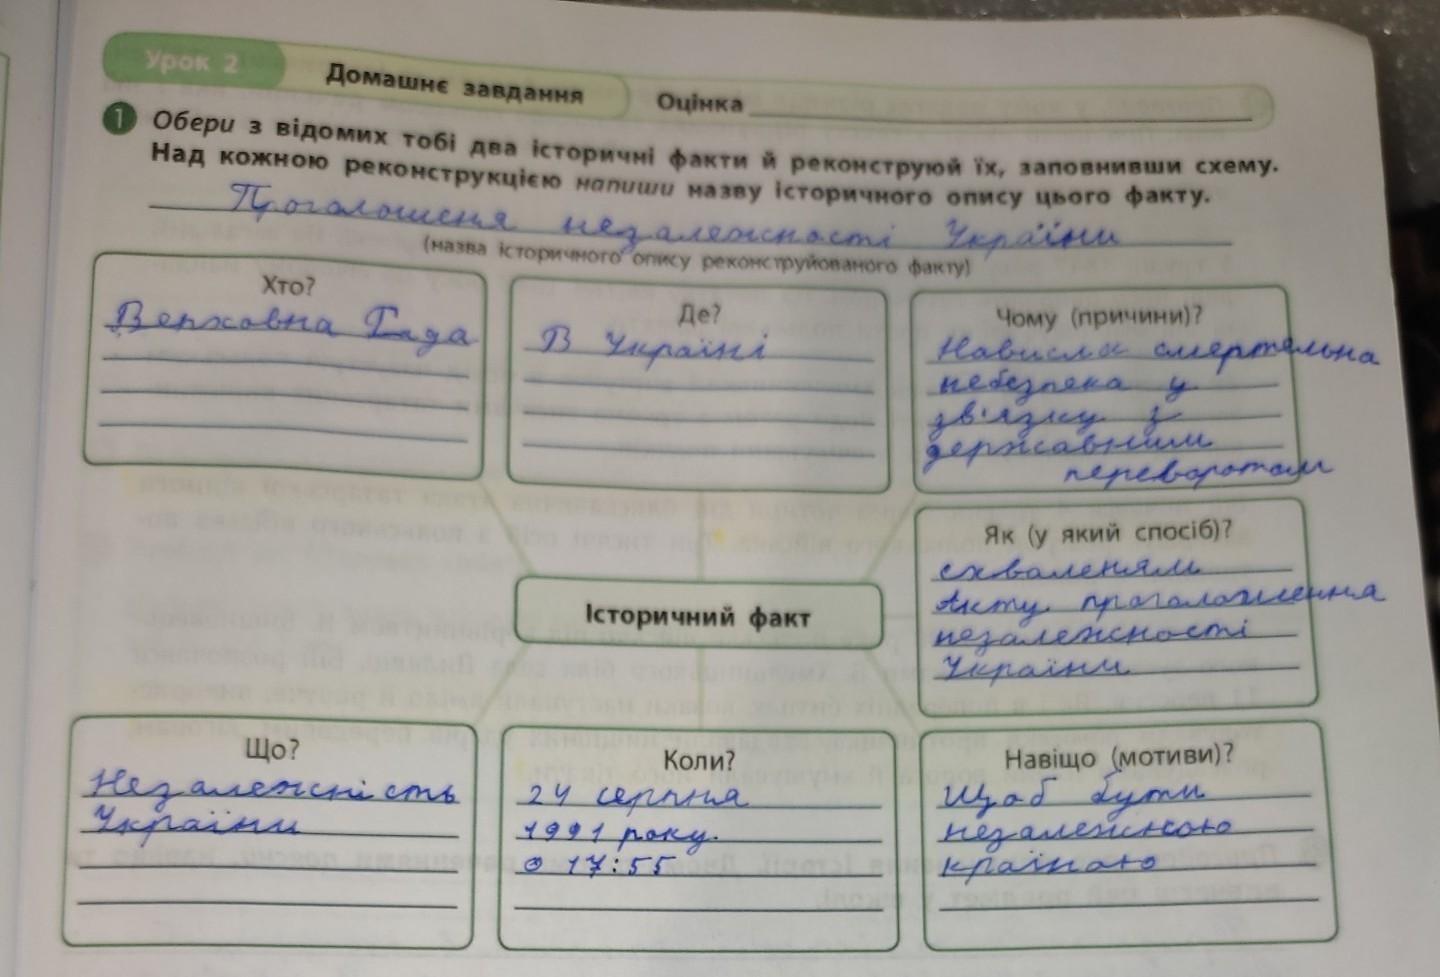 Урок 2
Домашнє завдання
Оцінка
1 Обери з відомих тобі два історичні факти й реконструюй їх, заповнивши схему.
Над кожною реконструкцією напиши назву історичного опису цього факту.
Проголошеня незалежності України
(назва історичного опису реконструйованого факту)
Хто?
Верховна Рада
Де?
В Україні
Чому (причини)?
Нависла смертельна
небезпека у
зв'язку з
державним
переворотом
Як (у який спосіб)?
схваленям
Акту проголошення
незалежності
України
Історичний факт
Що?
Незалежність
України
Коли?
24 серпня
1991 року.
о 17:55
Навіщо (мотиви)?
Щоб бути
незалежною
країною